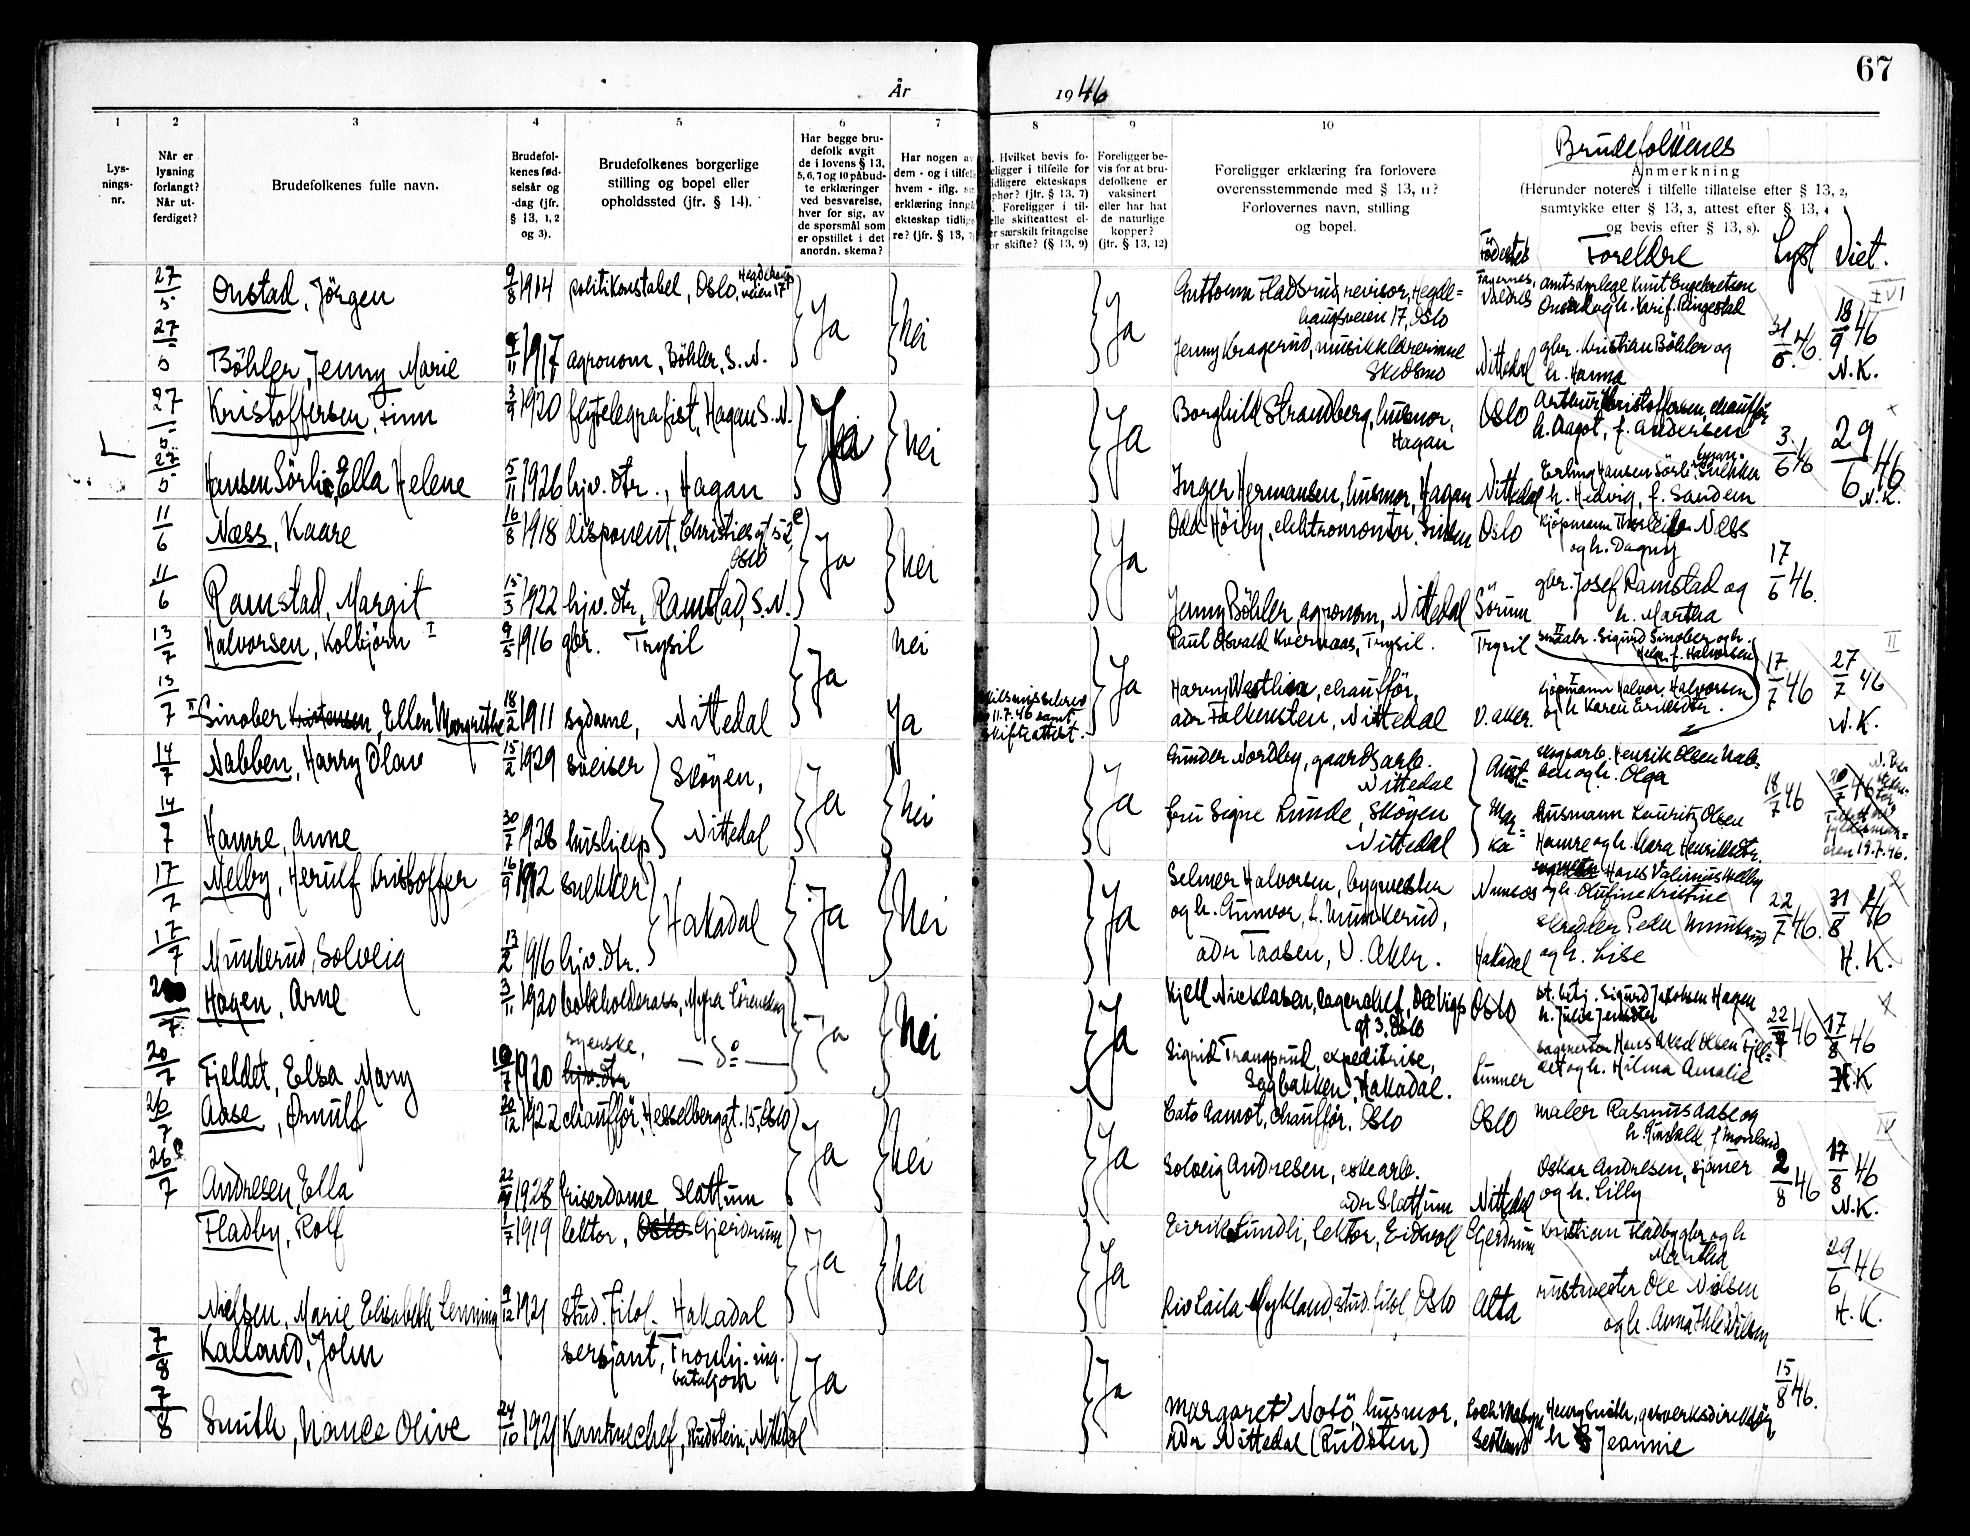 67
År 1946
1
2
3
4
5
6
7
8
9
10
11
Lys-
nings-
nr.
Når er
lysning
forlangt?
Når ut-
ferdiget?
Brudefolkenes fulle navn.
Brudefol-
kenes fød-
selsår og
-dag (jfr.
§ 13, 1, 2
og 3).
Brudefolkenes borgerlige
stilling og bopel eller
opholdssted (jfr. § 14).
Har begge bru-
defolk avgit
de i lovens § 13,
5, 6, 7 og 10 påbud-
te erklæringer
ved besvarelse,
hver for sig, av
de spørsmål som
er opstillet i det
anordn. skema?
Har nogen av
dem - og i tilfelle
hvem - iflg. sin
erklæring inngått
ekteskap tidlige-
re? (jfr. § 13, 7)
Hvilket bevis fo-
religger i tilfelle for
tidligere ekteskaps
ophør? (jfr. § 13, 7)
Foreligger i til-
felle skifteattest el-
ler særskilt fritagelse
for skifte? (§ 13, 9)
Foreligger be-
vis for at bru-
defolkene er
vaksinert
eller har hat
de naturlige
kopper?
(jfr. § 13, 12)
Foreligger erklæring fra forlovere
overensstemmende med § 13, 11?
Forlovernes navn, stilling
og bopel.
Brudefolkenes
Anmerkning
(Herunder noteres i tilfelle tillatelse efter § 13, 2,
samtykke efter § 13, 3, attest efter § 13, 4
og bevis efter § 13, 8).
Födested
Foreldre
Lyst
Viet.
27/5 Onstad, Jörgen 9/8 1914 politikonstabel, Oslo, Hegdehaugs-
veien 17
Ja nei Ja
Guttorm Fladsrud, revisor, Hegde-
haugsveien 17, Oslo
Fagernes, Valdres
amtsdyrlege Knut Engebretsen
Onstad og h. Kari f. Ringestad
27/5 Böhler, Jenny Marie 1917 agronom, Böhler, S. N.
Jenny Kragerud, musikklærerinne
Skedsmo
Nittedal gbr. Kristian Böhler og
h. Hanna
31/5 46. 18/9 46
N.K.
27/5 Kristoffersen, Finn 3/9 1920 flytelegrafist, Hagan S. N.
Ja nei Ja
Borghild Strandberg, husmor,
Hagan
Oslo Arthur Kristoffersen, chaufför
h. Aagot, f. Andersen
27/5 Hansen Sörlie, Ella Helene 5/11 1926 hjv. dtr., Hagan
Inger Hermansen, husmor, Hagan Nittedal
Erling Hansen Sörli, snekker
h. Hedvig, f. Sandem
3/6 46 29/6 46
N.K.
11/6 Næss, Kaare 16/8 1918 disponent, Christiesgt 5 2,
Oslo
Ja nei Ja
Odd Höiby, elektromontör. Oslo
kjöpmann Thorleif Næss
og h. Dagny
11/6 Ramstad, Margit 15/3 1922 hjv. dtr, Ramstad, S. N.
Jenny Böhler, agronom, Nittedal Sörum
gbr. Josef Ramstad og
h. Martha
17/6 46.
13/7 Halvorsen, Kolbjörn I 9/5 1916 gbr. Trysil
Ja nei Ja
Paul Osvald Kvernaas, Trysil. Trysil
II Sigurd Sinober og h.
Helga f. Halvorsen
13/7 II Sinober Kristensen, Ellen Margrethe 18/2 1911 sydame, Nittedal
Ja
11.7.46 samt
skifteattest.
Harry Westlien, chauffør,
adr Falkensten, Nittedal V. Aker.
I kjöpmann Halvor Halvorsen
og h Karen
17/7 46 27/7 46
N.K.
II
14/7 Nabben, Harry Olav 15/2 1929 sveiser Skøyen,
Nittedal
Ja nei Ja
Gunder Nordby, gaardsarb.
Nittedal
Aust-
Mar-
ka
skogsarb. Henrik Olsen Nab-
ben og h. Olga
14/7 Hamre, Anne 30/7 1928 hushjelp
Fru Signe Lunde, Skøyen
Nittedal
Husmann Lauritz Olsen
Hamre og h. Kara Henriksdtr.
18/7 46
19.7.46.
17/7 Melby, Herulf Kristoffer 16/9 1912 snekker Hakadal
Ja Nei Ja
Selmer Halvorsen, bygmester Namsos
og h. Gunvor, f. Munkerud,
adr Taasen, V. Aker.
Hans Valinius Melby
og h. Olufine Kristine
17/7 Munkerud, Solveig 13/2 1916 hjv. dtr.
Hakadal
skredder Peder Munkerud
og h. Lise
22/7 46. 31/8 46
H. K.
20/7 Hagen, Arne 3/11 1920 bokholderass, Myra Lörenskog
Ja Nei Ja
Kjell Nicklasen, lagersjef, Ole Vigs
gt 3, Oslo
Oslo st. betj. Sigurd Jakobsen Hagen
h. Julie Jensdtr
20/7 Fjeldet, Elsa Mary 10/7 1920 syerske,
hjv. dtr
Sigrid Trangsrud, expeditrise,
Sagbakken, Hakadal.
Lunner
Hans Axel Olsen Fjel-
det og h. Hilma Amalie
22/7 46 17/8 46
H.K
26/7 Aase, Ørnulf 20/12 1922 chauffør, Hesselberggt. 15, Oslo
Ja Nei Ja
Cato Aamot, chauffør. Oslo Oslo
maler Rasmus Aase og
26/7 Andresen, Ella 1928 friserdame Slattum
Solveig Andresen, eskearb.
adr Slattum
Nittedal
Oskar Andresen, sjömer
og h. Lilly
2/8 46 17/8 46
N.K.
IV
Fladby, Rolf 1/7 1919 lektor, Oslo Gjerdrum
Ja nei Ja
Eirik Lundli, lektor, Eidsvoll Gjerdrum
Kristian Fladby gbr og h
Martha
Nielsen, Marie Elisabeth Lenning 9/12 1921 stud. filol. Hakadal
Liv Laila Myklund, stud. filol, Oslo Alta
rustmester Ole Nilsen
og h. Anna Ihle Nilsen
29/6 46
H. K.
7/8 Kalland, John sersjant, Trondhj. ing.
bataljon
Ja Ja
7/8 Smith, Nance Olive 24/10 1921 Kantinechef, Rudstein, Nittedal
Margaret Notö, husmor,
adr Nittedal (Rudsten)
Henry Smith, gasverksdirektör
h Jeannie
15/8 46.